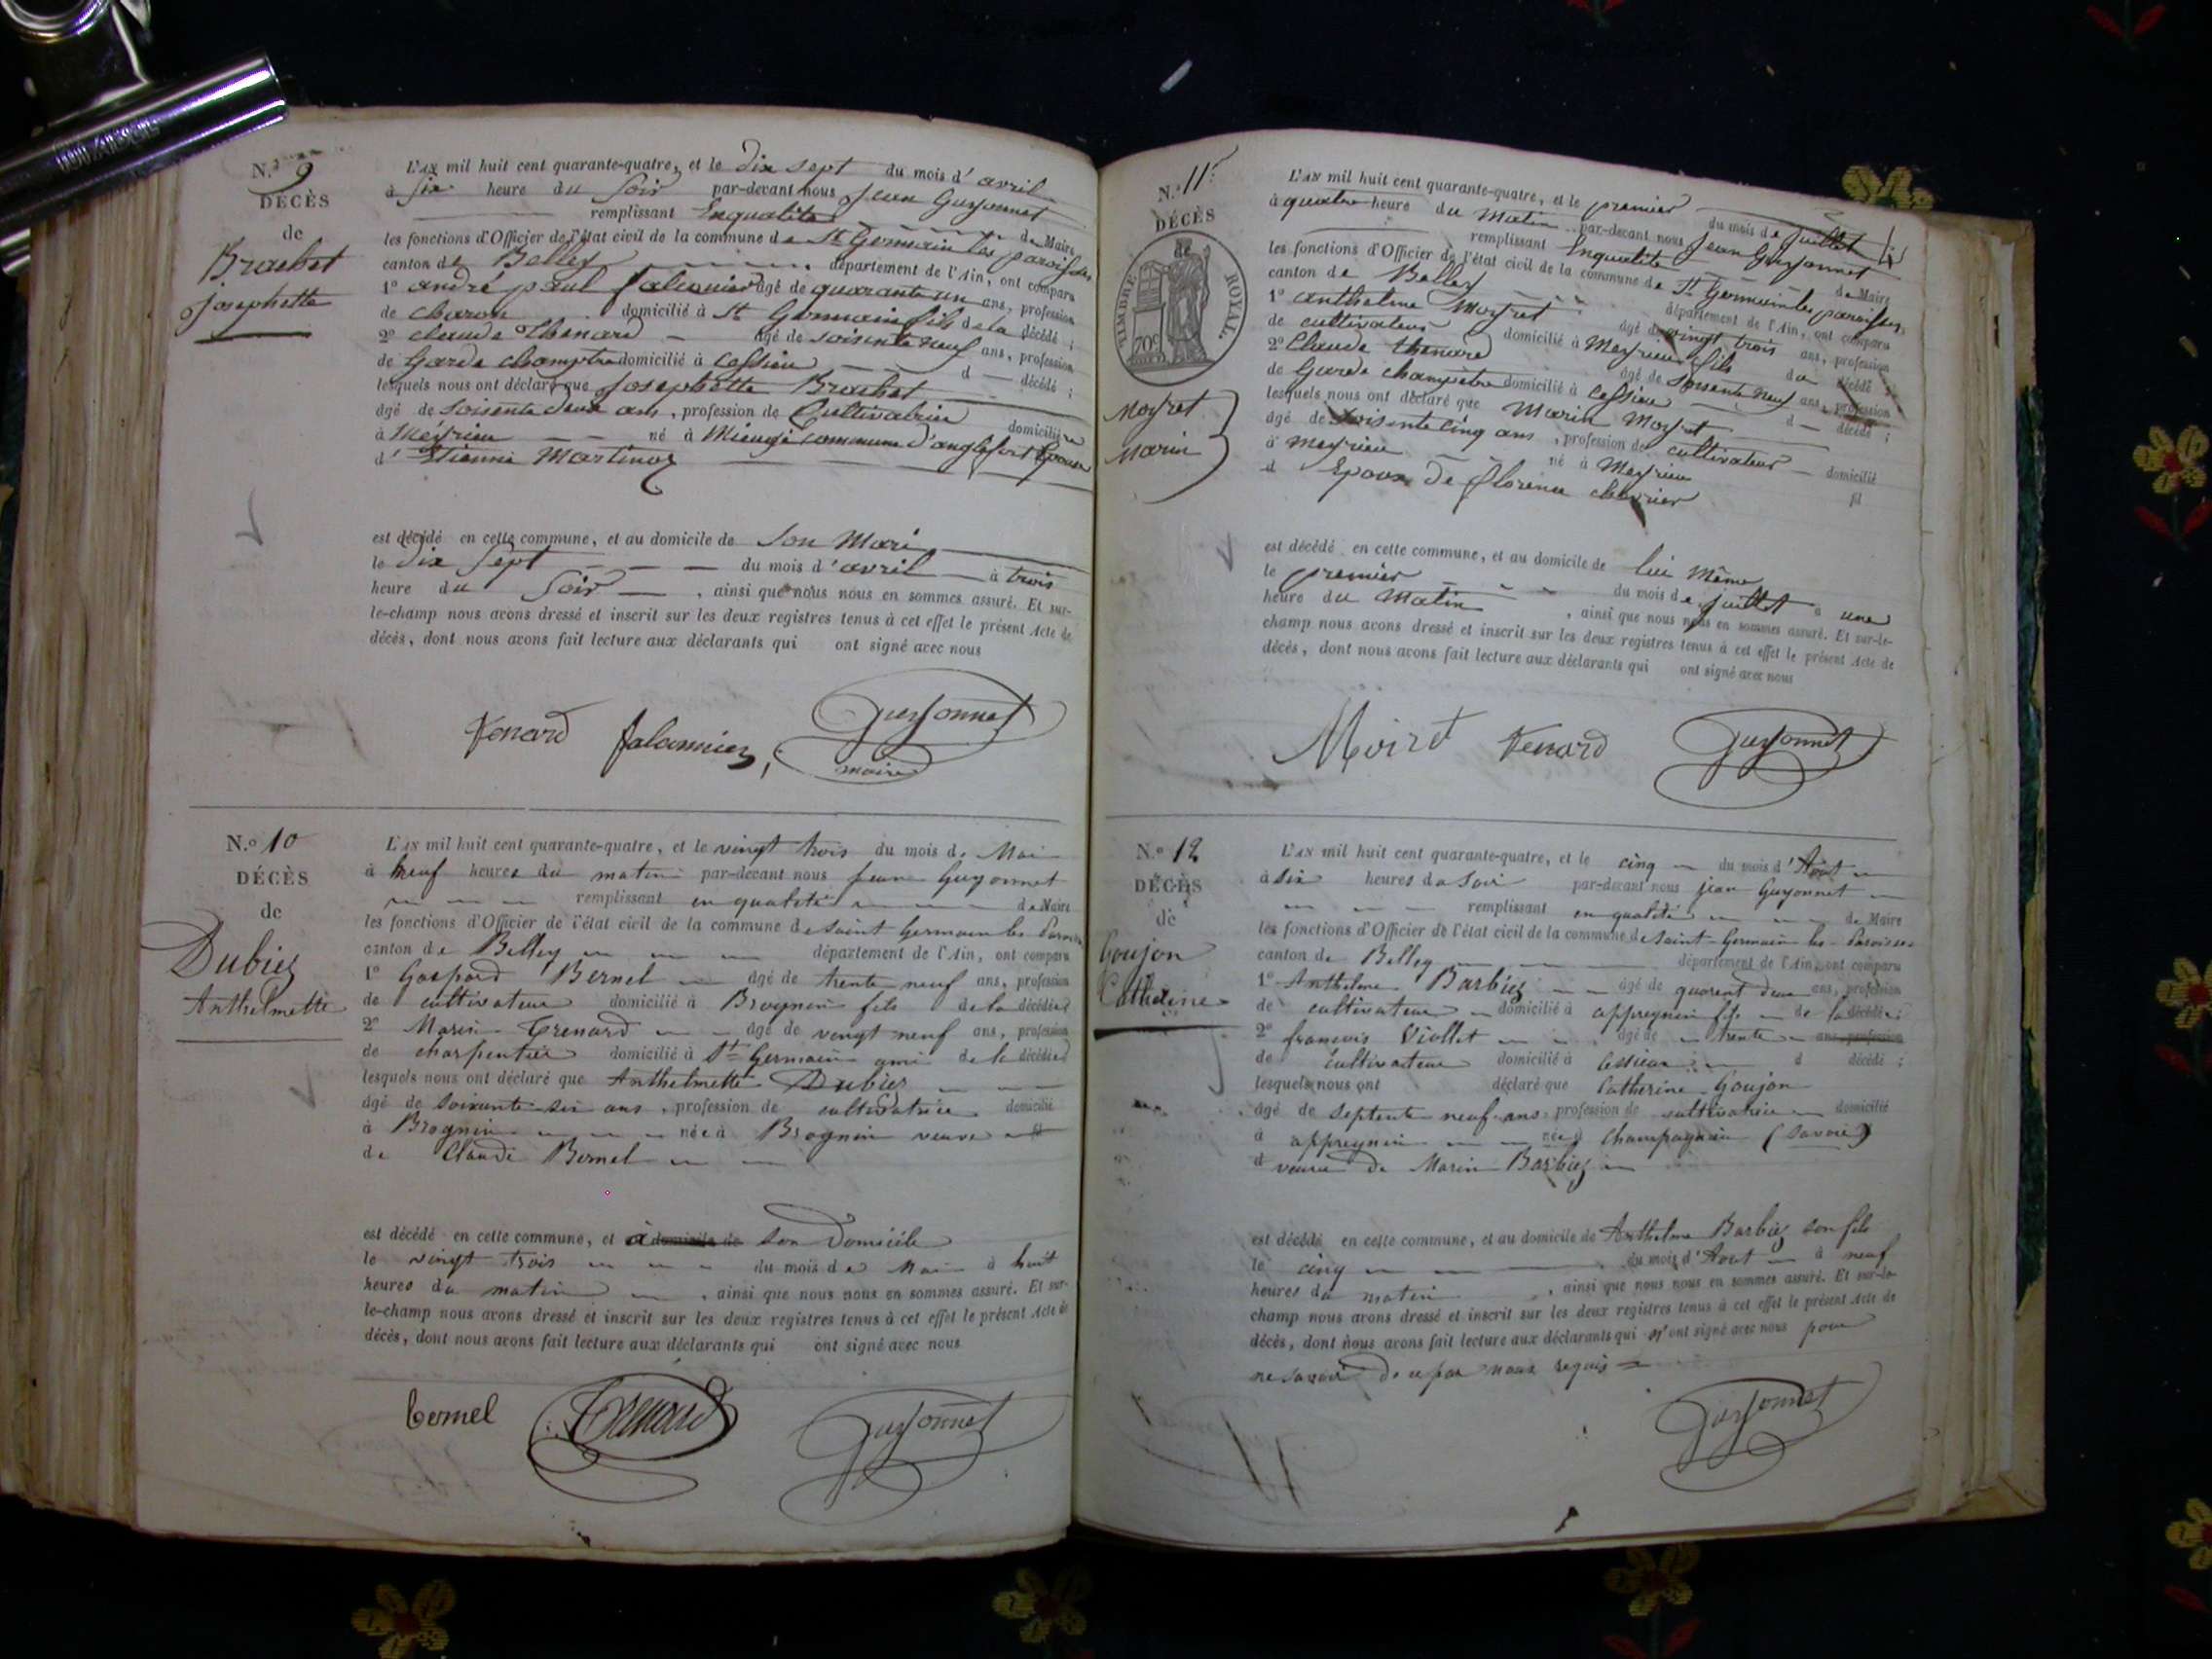 N.º 9
DÉCÈS
de
Brachet
Josephette
L'AN mil huit cent quarante-quatre, et le Dix sept du mois d'avril
à six heure du Soir par-devant nous Jean Guyonnet
remplissant Enqualité de Maire
les fonctions d'Officier de l'état civil de la commune de St Germain les paroisses
canton de Belley département de l'Ain, ont comparu
1º andré paul falconnier âgé de quarante un ans, profession
de charon domicilié à St Germain fils de la décédé ;
2º claude thenard âgé de soisente neuf ans, profession
de Garde champtre domicilié à Cessieu d décédé ;
lesquels nous ont déclaré que Josephette Brachet
âgé de soisente deux ans, profession de Cultivatrice domicilié
à Meyrieu né à Mieugé commune d'anglefort Epouse
d' Etienne Martinoz
est décédé en cette commune, et au domicile de son Mari
le Dix Sept du mois d'avril à trois
heure du Soir, ainsi que nous nous en sommes assuré. Et sur-
le-champ nous avons dressé et inscrit sur les deux registres tenus à cet effet le présent Acte de
décès, dont nous avons fait lecture aux déclarants qui ont signé avec nous
Tenard falconnier Guyonnet
maire
N.º 10
DÉCÈS
de
Dubiez
Anthelmette
L'AN mil huit cent quarante-quatre, et le vingt trois du mois de Mai
à neuf heures du matin par-devant nous Jean Guyonnet
remplissant en qualité de Maire
les fonctions d'Officier de l'état civil de la commune de Saint Germain les Paroisses
canton de Belley département de l'Ain, ont comparu
1º Gaspard Bernel âgé de trente neuf ans, profession
de cultivateur domicilié à Brognin fils de la décédée
2º Marin Trenard âgé de vingt neuf ans, profession
de charpentier domicilié à St Germain ami de la décédée
lesquels nous ont déclaré que Anthelmette Dubiez
âgé de soixante six ans, profession de cultivatrice domicilié
à Brognin née à Brognin veuve fil
de Claude Bernel
est décédé en cette commune, et à domicile de son Domicile
le vingt trois du mois de Mai à huit
heures du matin, ainsi que nous nous en sommes assuré. Et sur-
le-champ nous avons dressé et inscrit sur les deux registres tenus à cet effet le présent Acte de
décès, dont nous avons fait lecture aux déclarants qui ont signé avec nous
Bernel Trenard Guyonnet
N.º 11
DÉCÈS
de
TIMBRE ROYAL
70c
Moyret
Marin
L'AN mil huit cent quarante-quatre, et le premier du mois de juillet
à quatre heure du Matin par-devant nous Jean Guyonnet
remplissant Enqualité de Maire
les fonctions d'Officier de l'état civil de la commune de St Germain les paroisses
canton de Belley département de l'Ain, ont comparu
1º anthelme Moyret âgé de vingt trois ans, profession
de cultivateur domicilié à Meyrieu fils du décédé ;
2º Claude thenard âgé de soisente neuf ans, profession
de Garde champetre domicilié à Cessieu d décédé ;
lesquels nous ont déclaré que Marin Moyret
âgé de soisente cinq ans, profession de cultivateur domicilié
à Meyrieu né à Meyrieu fil
d Epoux de florence chevrier
est décédé en cette commune, et au domicile de lui Même
le premier du mois de juillet à une
heure du Matin, ainsi que nous nous en sommes assuré. Et sur-le-
champ nous avons dressé et inscrit sur les deux registres tenus à cet effet le présent Acte de
décès, dont nous avons fait lecture aux déclarants qui ont signé avec nous
Moiret Tenard Guyonnet
N.º 12
DÉCÈS
de
Goujon
Catherine
L'AN mil huit cent quarante-quatre, et le cinq du mois d'Août
à six heures du Soir par-devant nous jean Guyonnet
remplissant en qualité de Maire
les fonctions d'Officier de l'état civil de la commune de Saint-Germain les Paroisses
canton de Belley département de l'Ain, ont comparu
1º Anthelme Barbiez âgé de quarent deux ans, profession
de cultivateur domicilié à appregnin fils de la décédé ;
2º francois Viollet âgé de trente ans, profession
de cultivateur domicilié à Cessieu d décédé ;
lesquels nous ont déclaré que Catherine Goujon
âgé de septente neuf ans, profession de cultivatrice domicilié
à appregnin née à Champagnin (Savoie)
d veuve de Marin Barbiez
est décédé en cette commune, et au domicile de Anthelme Barbiez son fils
le cinq du mois d'Aout à neuf
heures du matin, ainsi que nous nous en sommes assuré. Et sur-le-
champ nous avons dressé et inscrit sur les deux registres tenus à cet effet le présent Acte de
décès, dont nous avons fait lecture aux déclarants qui n'ont signé avec nous pour
ne savoir de ce par nous requis
Guyonnet